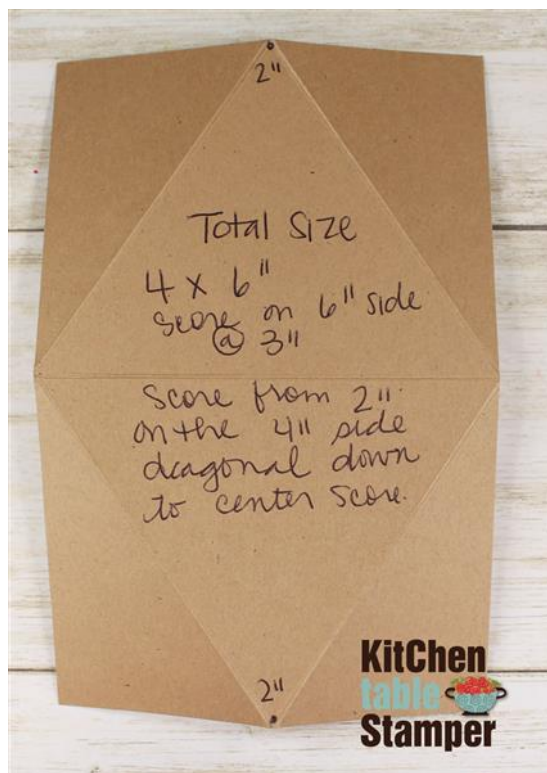 2"
Total Size
4 x 6"
Score on 6" side
@ 3"
Score from 2"
on the 4" side
diagonal down
to center score.
2"
KitChen
table
Stamper